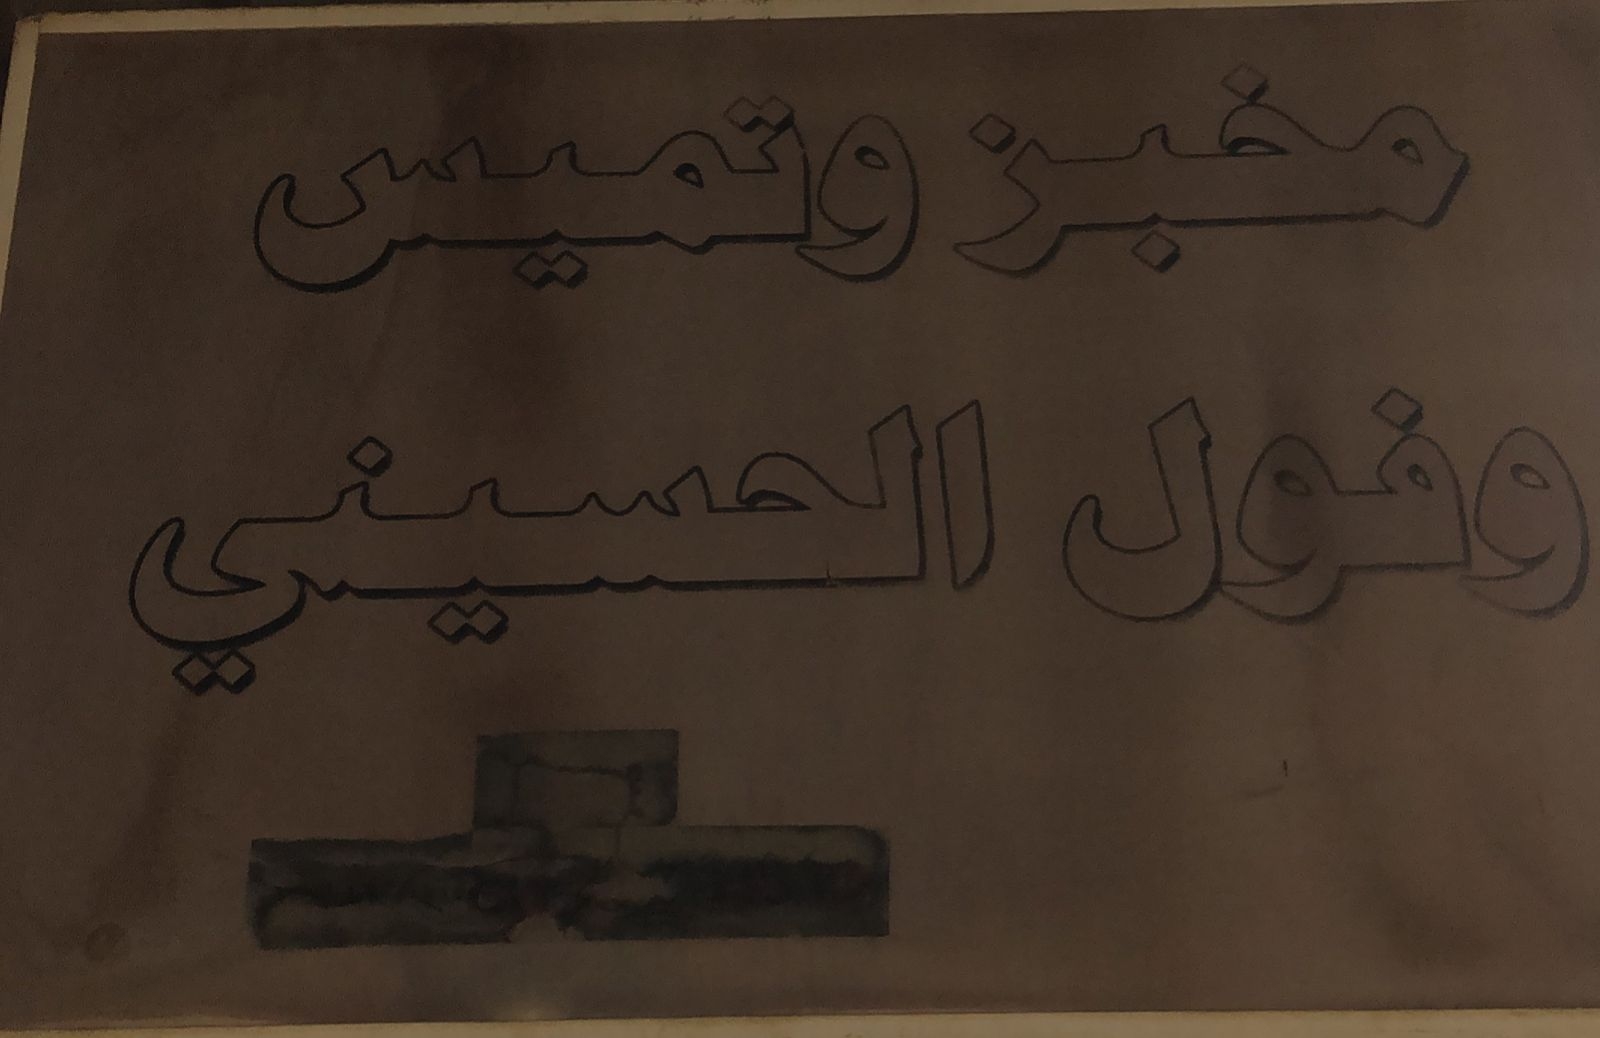 مخبز وتميس
وفول الحسيني